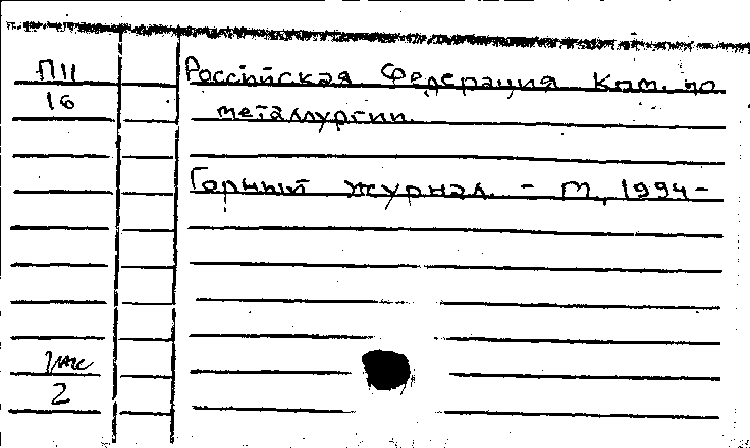 П11
16
Российская Федерация Ком. по
металлургии.
Горный журнал. - М, 1994-
2